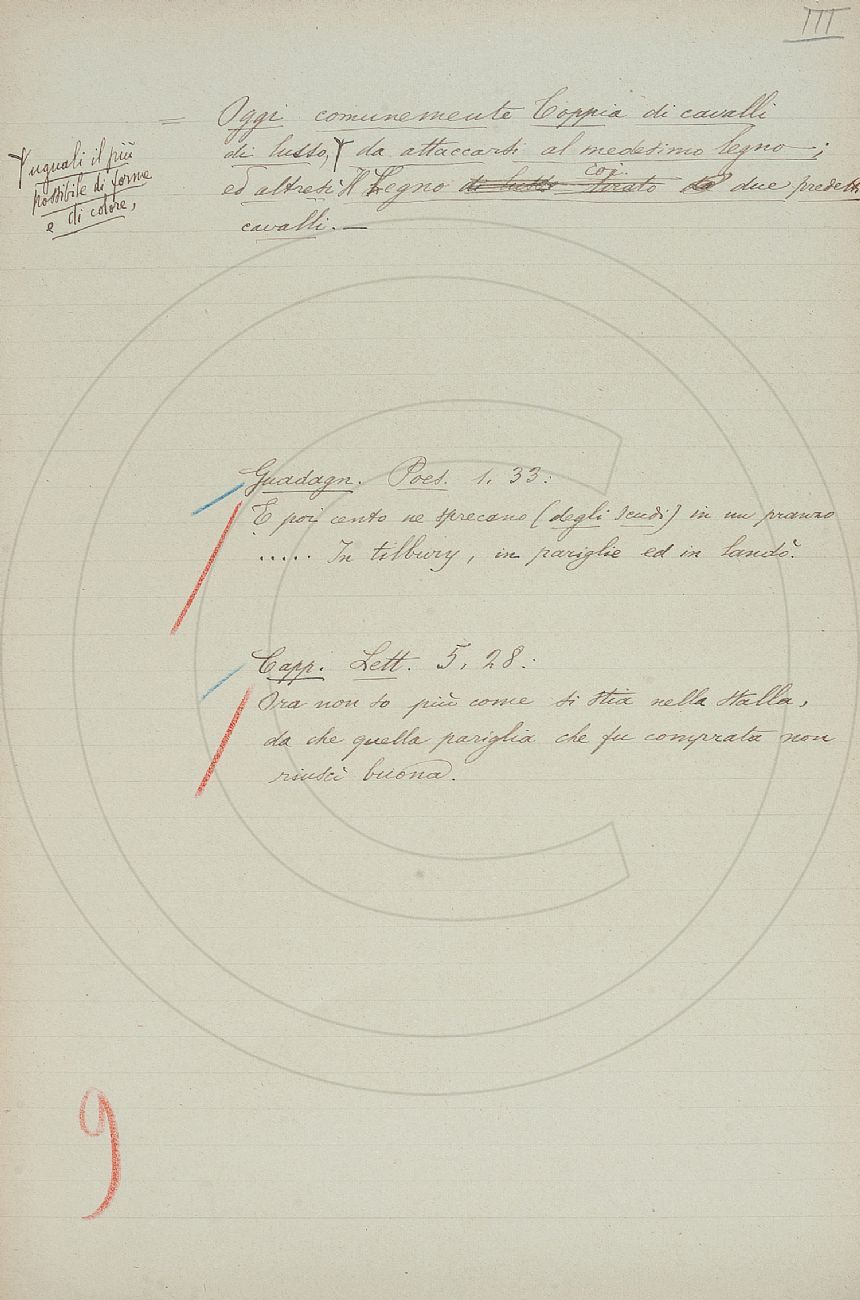 III
= Oggi comunemente Coppia di cavalli
di lusso, da attaccarsi al medesimo legno —;
uguali il più
possibile di forme
e di colore,
ed altresì Il Legno di lusso tirato coi due predetti
cavalli. —
Guadagn. Poes. 1. 33:
E poi cento ne sprecano (degli scudi) in un pranzo
..... In tilbury, in pariglie ed in landò.
Capp. Lett. 5, 28:
Ora non so più come si stia nella stalla,
da che quella pariglia che fu comprata non
riuscì buona.
9